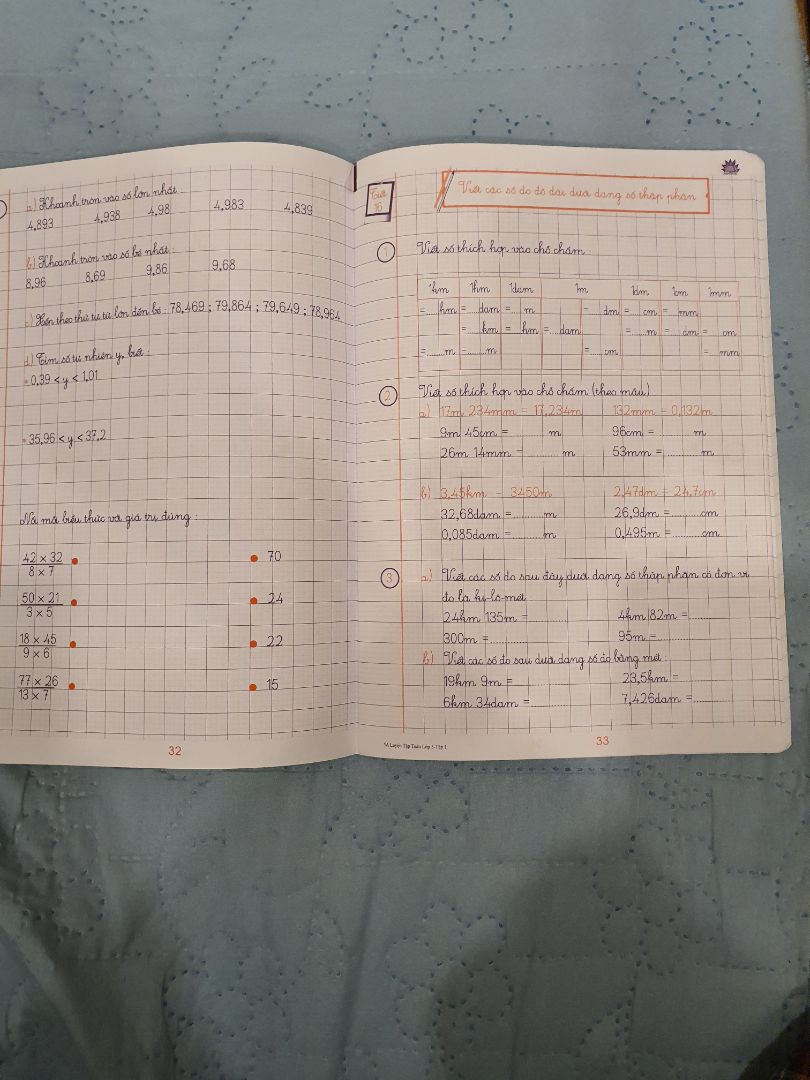 a) Khoanh tròn vào số lớn nhất:
4,893 4,938 4,98 4,983 4,839
b) Khoanh tròn vào số bé nhất:
8,96 8,69 9,86 9,68
c) Xếp theo thứ tự từ lớn đến bé: 78,469 ; 79,864 ; 79,649 ; 78,964
d) Tìm số tự nhiên y, biết:
• 0,39 < y < 1,01
• 35,96 < y < 37,2
Nối mỗi biểu thức với giá trị đúng:
42 × 32
8 × 7
70
50 × 21
3 × 5
24
18 × 45
9 × 6
22
77 × 26
13 × 7
15
32
Tiết
Viết các số đo độ dài dưới dạng số thập phân
1 Viết số thích hợp vào chỗ chấm:
1km 1hm 1dam 1m 1dm 1cm 1mm
=......hm =......dam =......m =......dm =......cm =......mm
=......km =......hm =......dam =......m =......dm =......cm
=......m =......m =......cm =......mm
2 Viết số thích hợp vào chỗ chấm (theo mẫu)
a) 17m 234mm = 17,234m 132mm = 0,132m
9m 45cm = ............ m 96cm = ............ m
26m 14mm = ............ m 53mm = ............ m
b) 3,45km = 3450m 2,47dm = 24,7cm
32,68dam = ............ m 26,9dm = ............ cm
0,085dam = ............ m 0,495m = ............ cm
3 a) Viết các số đo sau đây dưới dạng số thập phân có đơn vị
đo là ki-lô-mét
24km 135m = ............ 4km 82m = ............
300m = ............ 95m = ............
b) Viết các số đo sau dưới dạng số đo bằng mét:
19km 9m = ............ 23,5km = ............
6km 34dam = ............ 7,426dam = ............
Luyện Tập Toán Lớp 5 - Tập 1
33